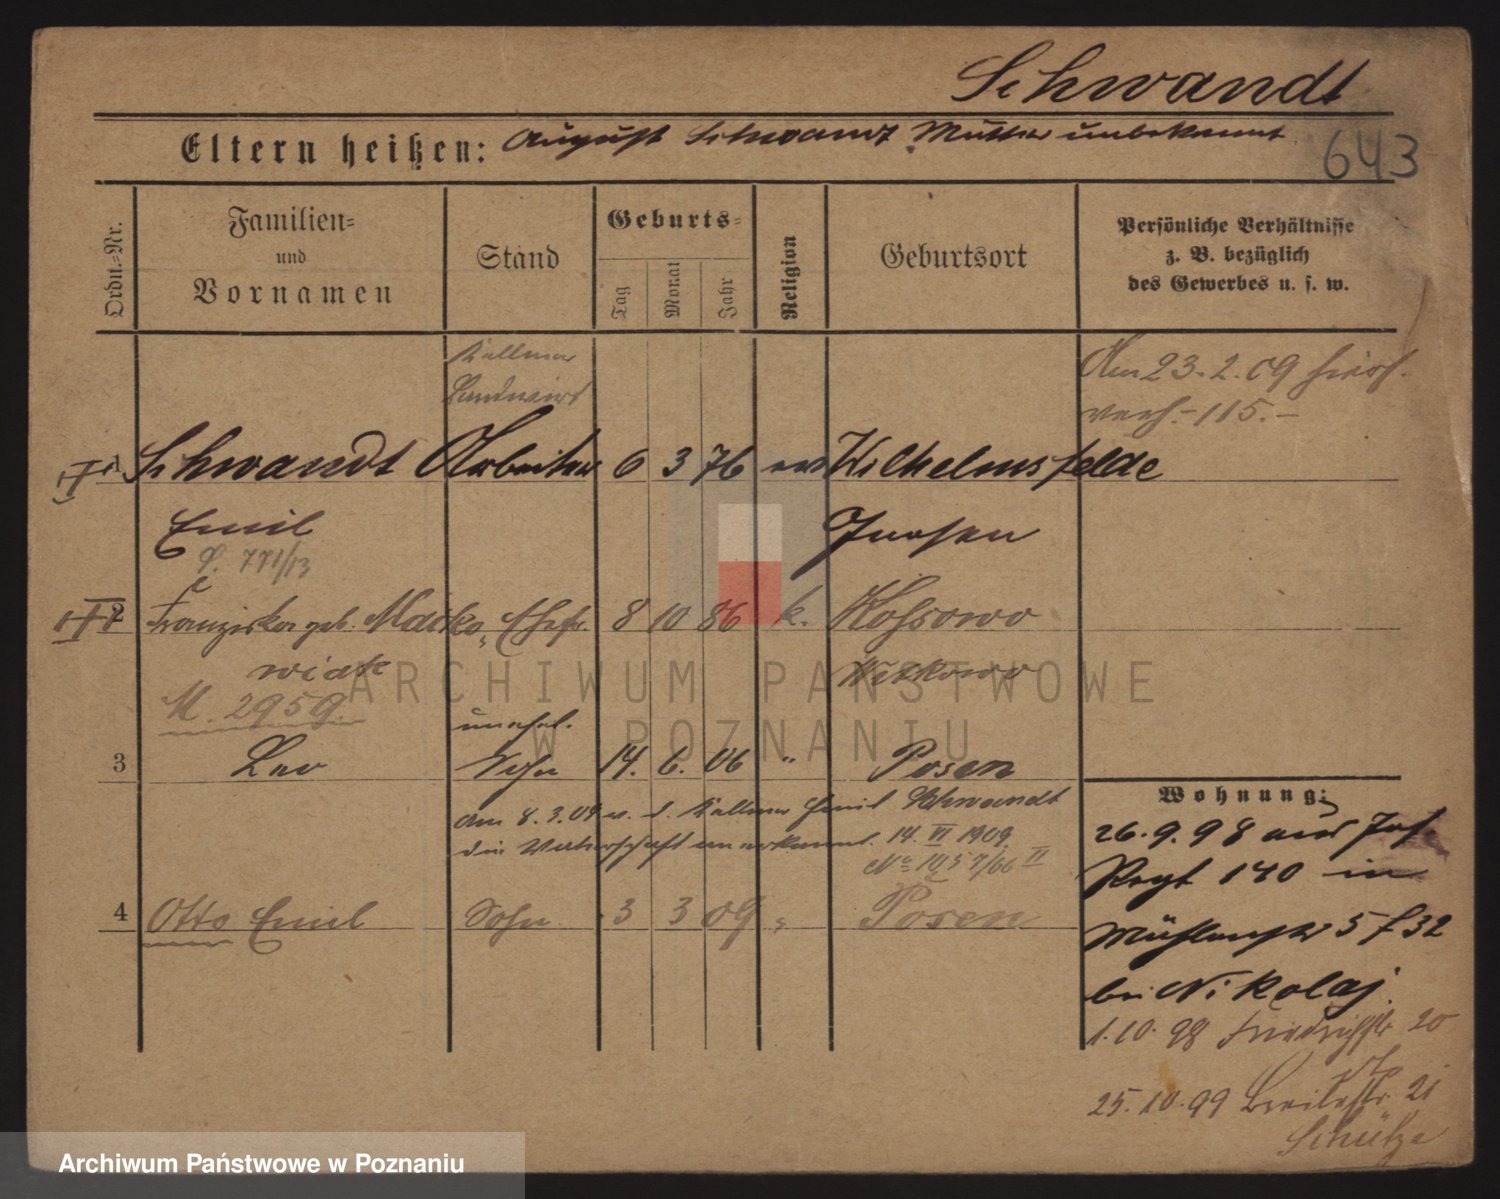 Schwandt
Eltern heißen: August Schwandt Mutter unbekannt
643
Ordn.-Nr.
Familien-
und
Vornamen
Stand
Geburts-
Tag
Monat
Jahr
Religion
Geburtsort
Persönliche Verhältnisse
z. B. bezüglich
des Gewerbes u. s. w.
Kellner
Landwirt
Am 23.2.09 hier
verh. 115.
Schwandt Arbeiter 6 3 76 ev Wilhelmsfelde
Emil
Gnesen
771/13
2 Franziska geb. Maćko- Ehefr. 8 10 86 k. Kossowo
wiak
Witkowo
M. 2959.
unehel.
3 Leo Sohn 14. 6. 06 " Posen
am 8.3.09 v. d. Kellner Emil Schwandt
die Vaterschaft anerkannt. 14. VI 1909.
4 Otto Emil Sohn 3 3 09 " Posen
Wohnung:
26.9.98 aus Inf.
Regt 140 in
Mühlenstr 5
bei Nikolaj.
1.10.98 Friedrichstr. 20
25.10.99 Breitestr. 21
Schütze
ARCHIWUM PAŃSTWOWE
W POZNANIU
Archiwum Państwowe w Poznaniu